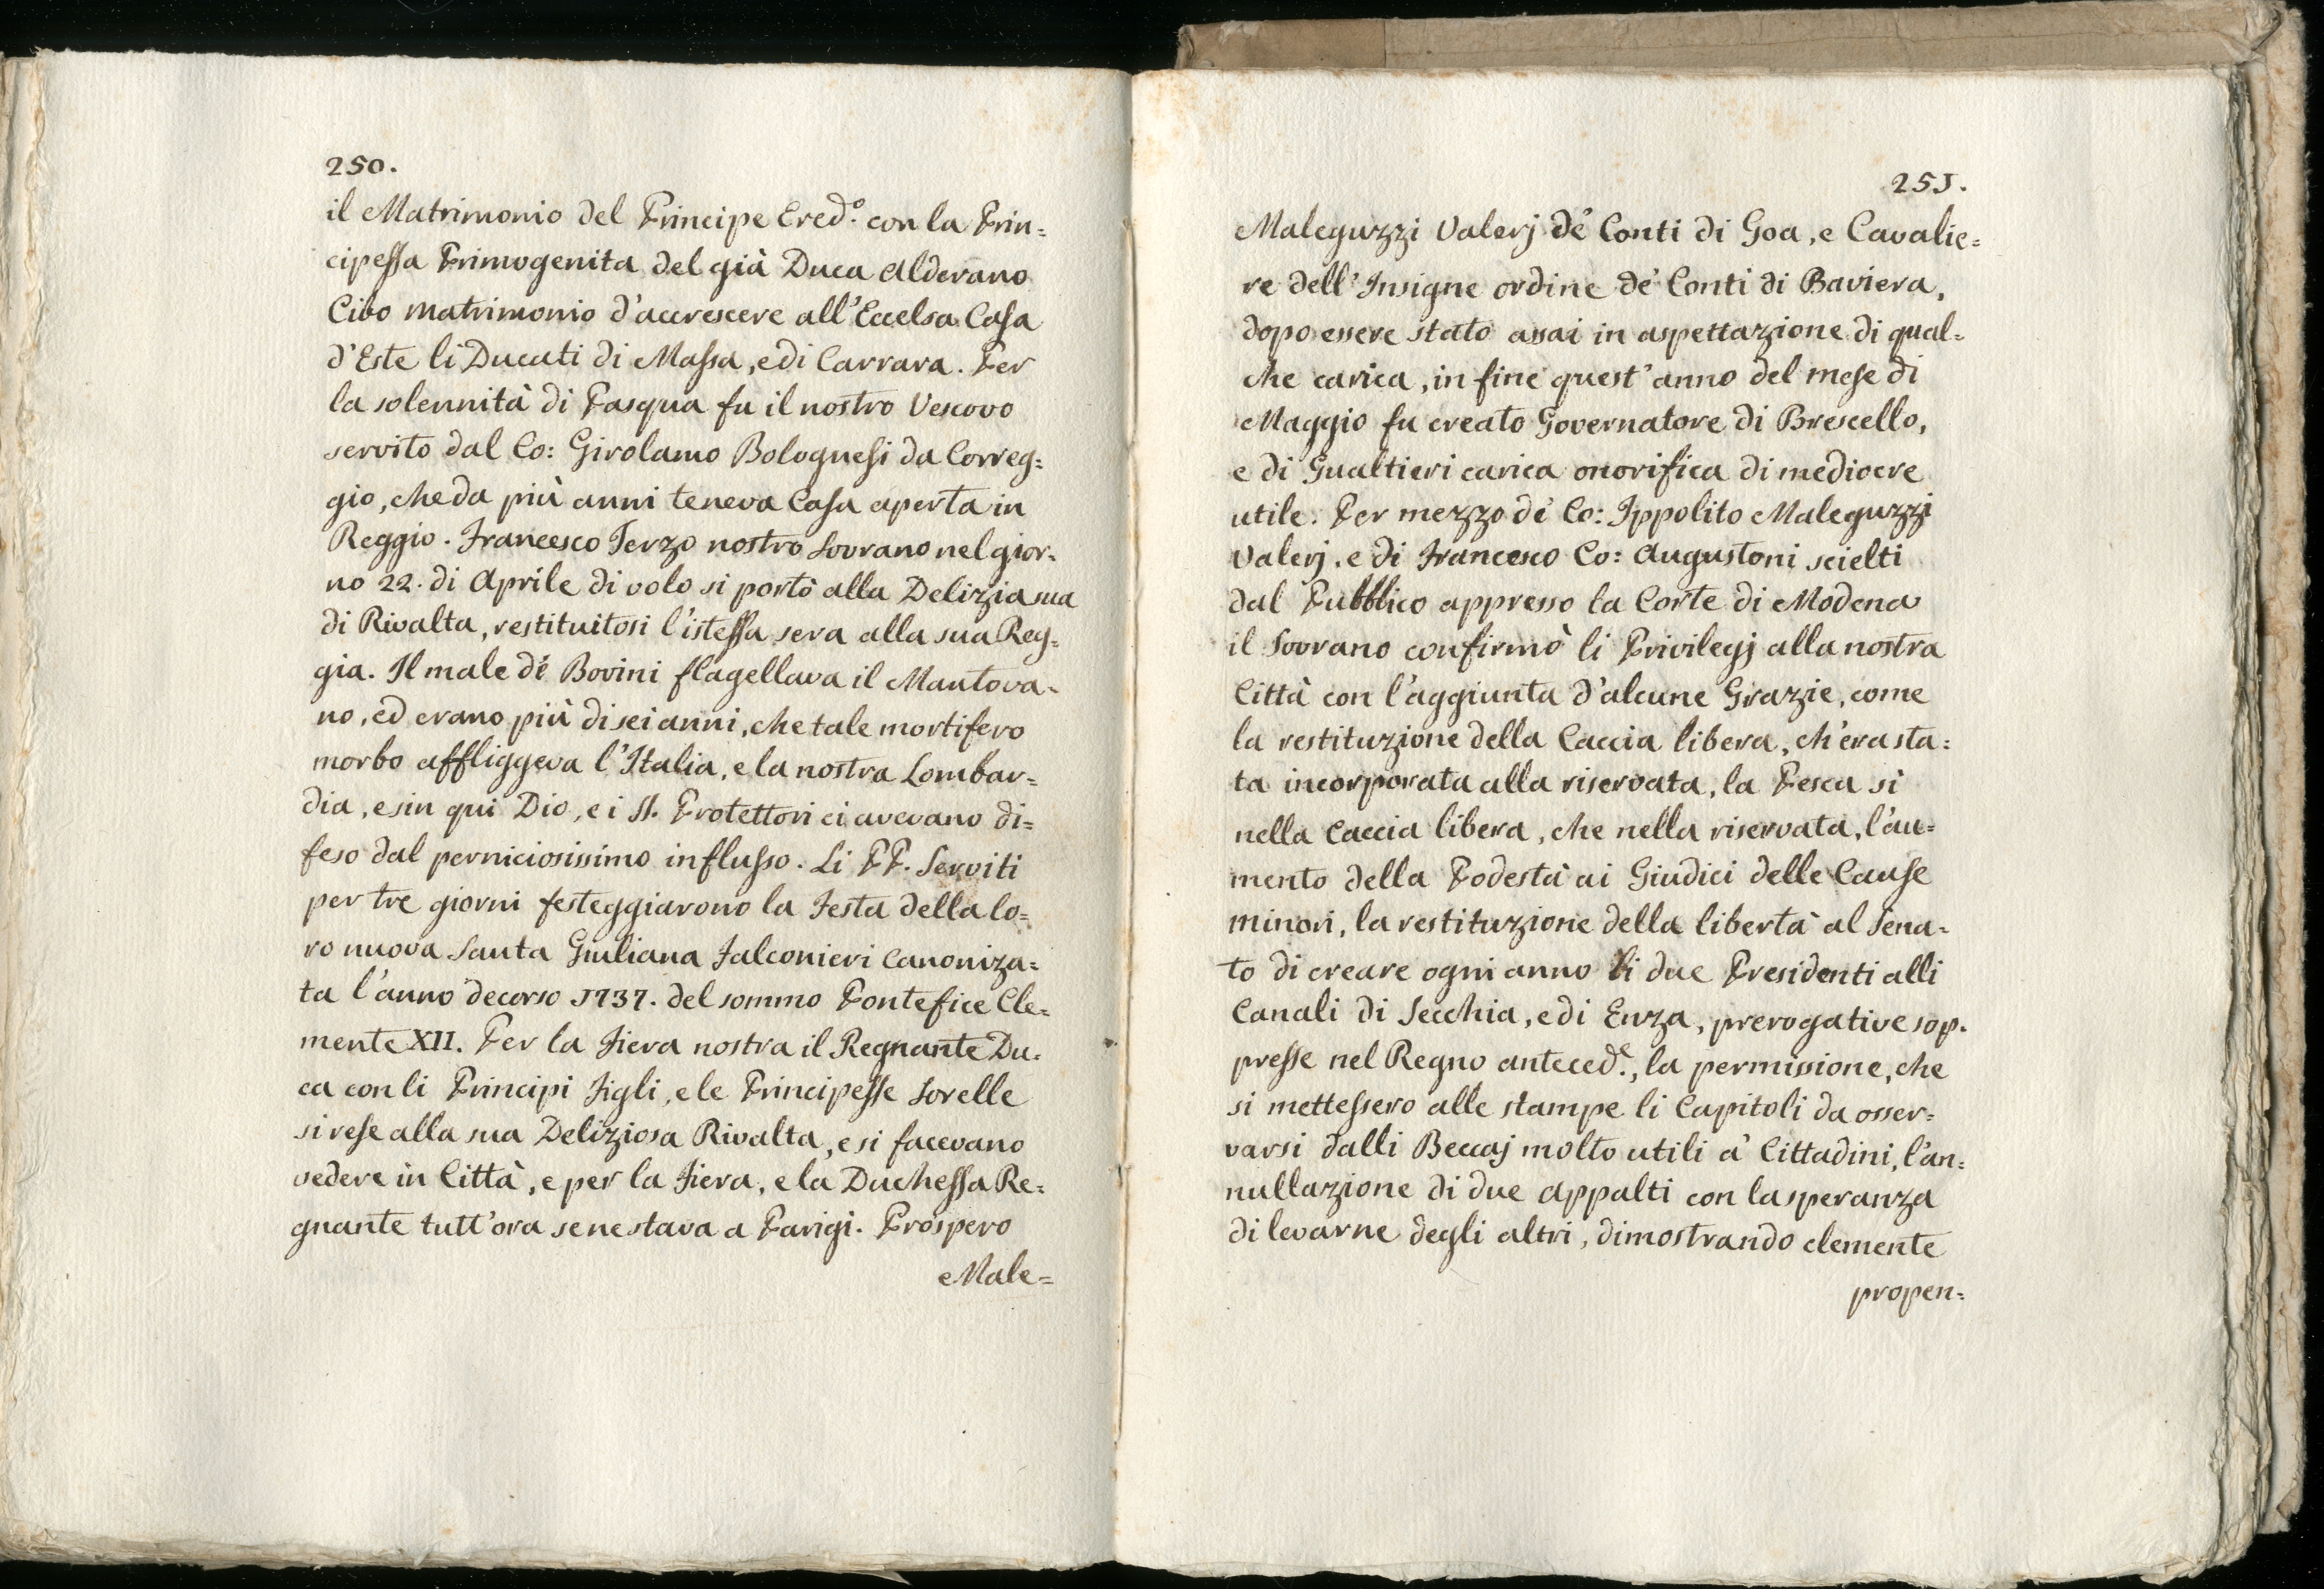 250.
il Matrimonio del Principe Ered.º con la Prin=
cipessa Primogenita del già Duca Alderano
Cibo matrimonio d'accrescere all'Eccelsa Casa
d'Este li Ducati di Massa, e di Carrara. Per
la solennità di Pasqua fu il nostro Vescovo
servito dal Co: Girolamo Bolognesi da Correg=
gio, che da più anni teneva Casa aperta in
Reggio. Francesco Terzo nostro Sovrano nel gior=
no 22. di Aprile di volo si portò alla Delizia sua
di Rivalta, restituitosi l'istessa sera alla sua Reg=
gia. Il male de' Bovini flagellava il Mantova=
no, ed erano più di sei anni, che tale mortifero
morbo affliggeva l'Italia, e la nostra Lombar=
dia, e sin qui Dio, e i SS. Protettori ci avevano di=
feso dal perniciosissimo influsso. Li PP. Serviti
per tre giorni festeggiarono la Festa della lo=
ro nuova Santa Giuliana Falconieri Canoniza=
ta l'anno decorso 1737. del sommo Pontefice Cle=
mente XII. Per la Fiera nostra il Regnante Du=
ca con li Principi Figli, e le Principesse Sorelle
si rese alla sua Deliziosa Rivalta, e si facevano
vedere in Città, e per la Fiera, e la Duchessa Re=
gnante tutt'ora se ne stava a Parigi. Prospero
Male=
251.
Maleguzzi Valerj de' Conti di Goa, e Cavalie=
re dell'Insigne ordine de' Conti di Baviera,
dopo essere stato assai in aspettazione di qual=
che carica, in fine quest'anno del mese di
Maggio fu creato Governatore di Brescello,
e di Gualtieri carica onorifica di mediocre
utile. Per mezzo de' Co: Ippolito Maleguzzi
Valerj, e di Francesco Co: Augustoni scielti
dal Pubblico appresso la Corte di Modena
il Sovrano confirmò li Privilegj alla nostra
Città con l'aggiunta d'alcune Grazie, come
la restituzione della Caccia libera, ch'era sta=
ta incorporata alla riservata, la Pesca sì
nella Caccia libera, che nella riservata, l'au=
mento della Podestà ai Giudici delle Cause
minori, la restituzione della libertà al Sena=
to di creare ogni anno li due Presidenti alli
Canali di Secchia, e di Enza, prerogative sop=
presse nel Regno anteced.e, la permissione, che
si mettessero alle stampe li Capitoli da osser=
varsi dalli Beccaj molto utili a' Cittadini, l'an=
nullazione di due Appalti con la speranza
di levarne degli altri, dimostrando clemente
propen=